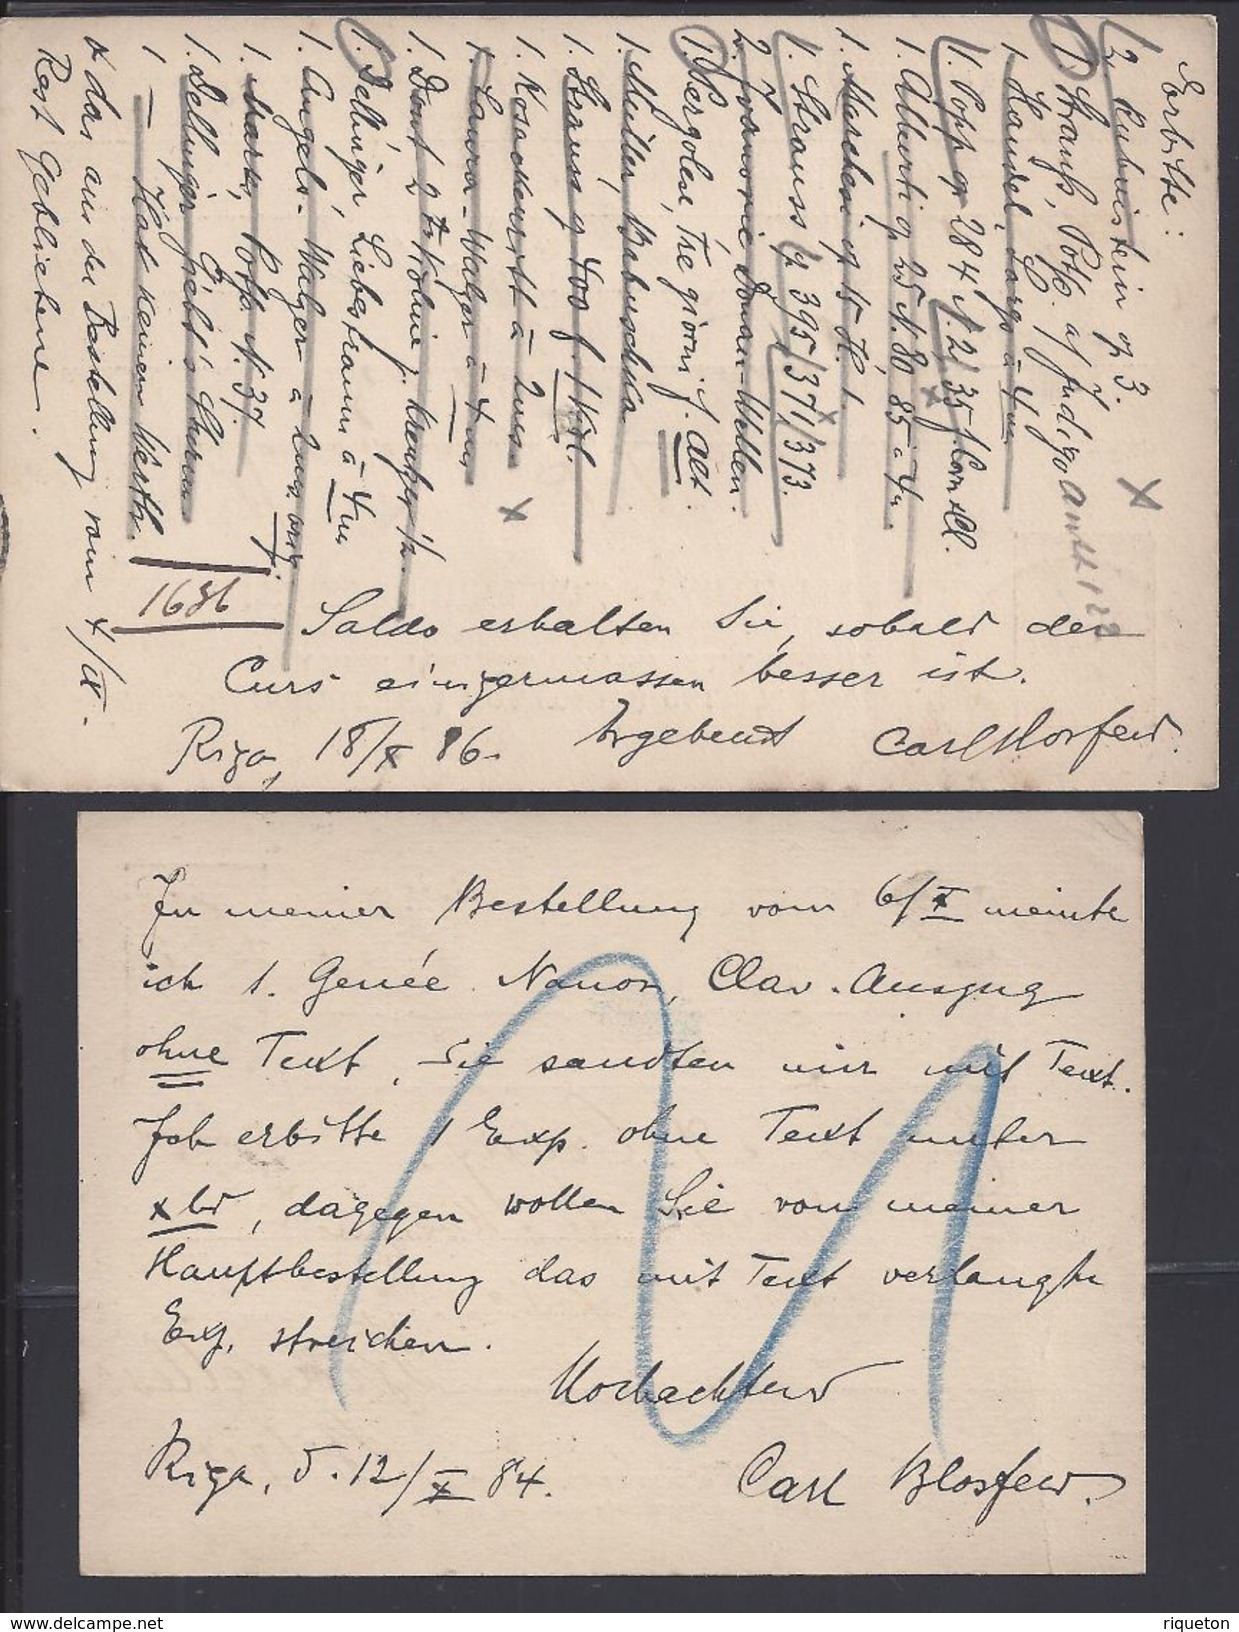 Erbitte:
2 Rubinstein op 3.
1 Strauß, Potp. a/ Indigo
1 Händel, Largo à 4m
1. Popp op 284 N. 2/35 f.
1. Alberti op 25 N. 80 85 à 4m
1. op 15 H. 1.
1. Strauss op 395/371/373.
2. Ivanovici Donau-Wellen.
1 Pergolese, Tre giorni f. Alt.
1. Müller, Babuschka
1. Strauss op 400 f.
1. Kosakenritt à 2ms
1. Laura-Walzer à 4ms
1. Dont 2
1. Dellinger, Liebestraum à 4m
1. Angelo-Walzer à 2ms
1. Potp. N. 37.
1. Dellinger
1 — Hat keinen Werth.
x das aus der Bestellung vom
Rest Gebliebene.
1636
Saldo erhalten Sie, sobald der
Curs einigermassen besser ist.
Riga, 18/X 86. Ergebenst Carl Blosfeld.
In meiner Bestellung vom 6/X meinte
ich 1. Genée Nanon, Clav.-Auszug
ohne Text, Sie sandten mir mit Text.
Ich erbitte 1 Exp. ohne Text unter
xbd, dagegen wollen Sie von meiner
Hauptbestellung das mit Text verlangte
Exp. streichen.
Hochachtend
Riga, d. 12/X 84. Carl Blosfeld.
www.delcampe.net
riqueton